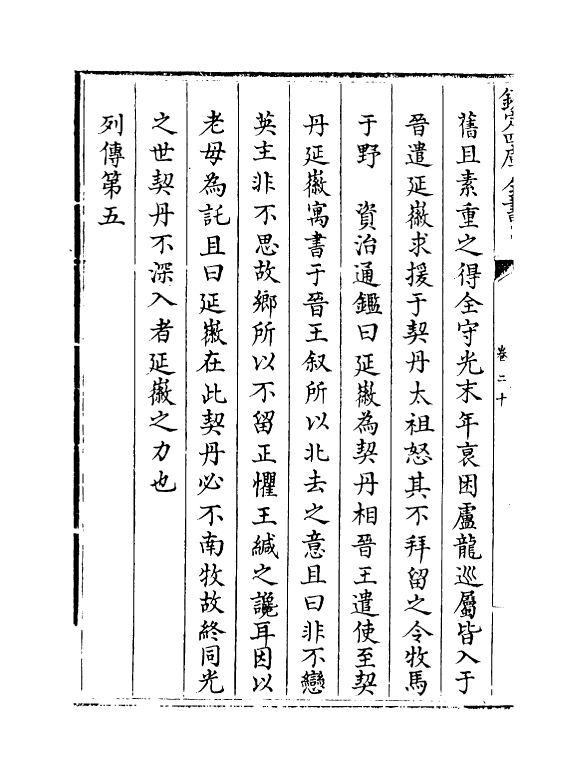 欽定四庫全書
卷二十
舊且素重之得全守光末年衰困盧龍巡屬皆入于
晉遣延徽求援于契丹太祖怒其不拜留之令牧馬
于野　資治通鑑曰延徽為契丹相晉王遣使至契
丹延徽寓書于晉王叙所以北去之意且曰非不戀
英主非不思故鄉所以不留正懼王緘之讒耳因以
老母為託且曰延徽在此契丹必不南牧故終同光
之世契丹不深入者延徽之力也
列傳第五